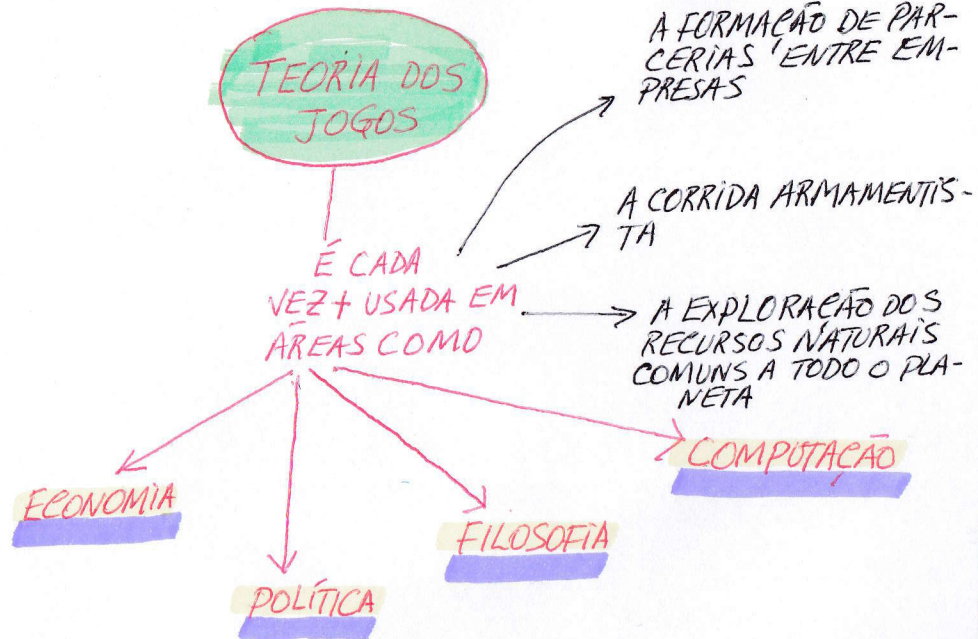 TEORIA DOS
JOGOS
É CADA
VEZ + USADA EM
ÁREAS COMO
A FORMAÇÃO DE PAR-
CERIAS ENTRE EM-
PRESAS
A CORRIDA ARMAMENTIS-
TA
A EXPLORAÇÃO DOS
RECURSOS NATURAIS
COMUNS A TODO O PLA-
NETA
ECONOMIA
POLÍTICA
FILOSOFIA
COMPUTAÇÃO